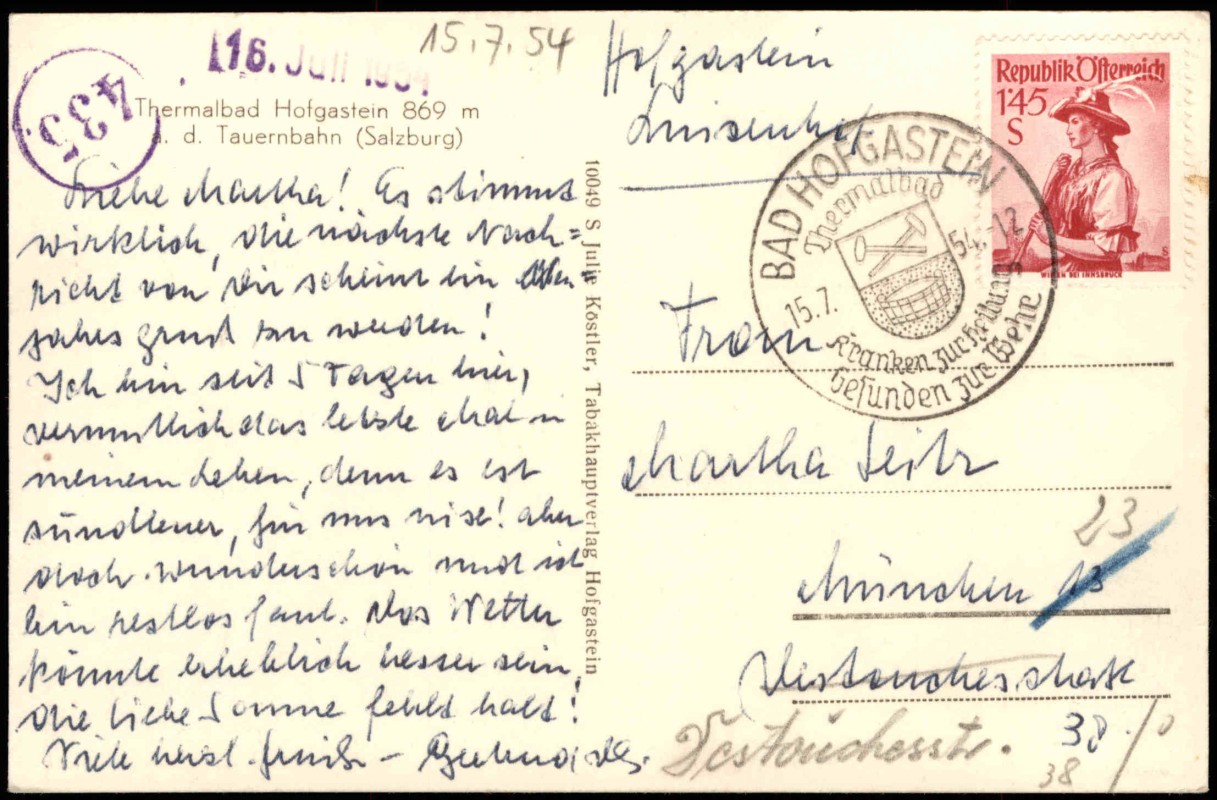 435
16. Juli 1954
15.7.54
Thermalbad Hofgastein 869 m
a. d. Tauernbahn (Salzburg)
Liebe Martha! Es stimmt
wirklich, die nächste Nach=
richt von Dir scheint ein
jahrsgruß zu werden!
Ich bin seit 5 Tagen hier,
vermutlich das letzte Mal in
meinem Leben, denn es ist
sündteuer, für uns aber
doch wunderschön und ich
bin restlos faul. Das Wetter
könnte erheblich besser sein,
die liebe Sonne fehlt halt!
Viele herzl. Grüße -
10049 S Julie Köstler, Tabakhauptverlag Hofgastein
Hofgastein
Luisenhof
Republik Österreich
1'45
S
WILTEN BEI INNSBRUCK
BAD HOFGASTEIN
Thermalbad
15.7. 54-12
Kranken zur Heilung
Gesunden zur Wehr
Frau
Martha Seitz
23
München 13
Destouchesstraße
38
Destouchesstr.
38